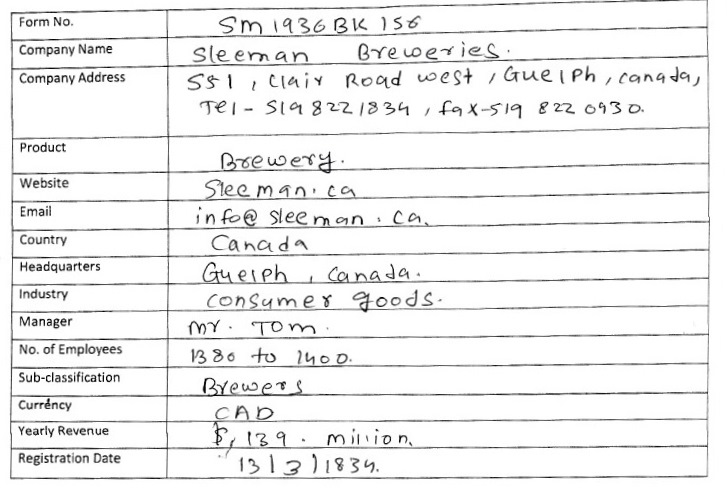 Form No. SM1936BK156
Company Name Sleeman Breweries.
Company Address 551, Clair Road west, Guelph, canada,
Tel - 519 822 1834, fax-519 822 0430.
Product Brewery.
Website Sleeman.ca
Email info@sleeman.ca.
Country Canada
Headquarters Guelph, Canada.
Industry Consumer goods.
Manager Mr. Tom.
No. of Employees 1380 to 1400.
Sub-classification Brewers
Currency CAD
Yearly Revenue $, 139. million.
Registration Date 13|3|1834.